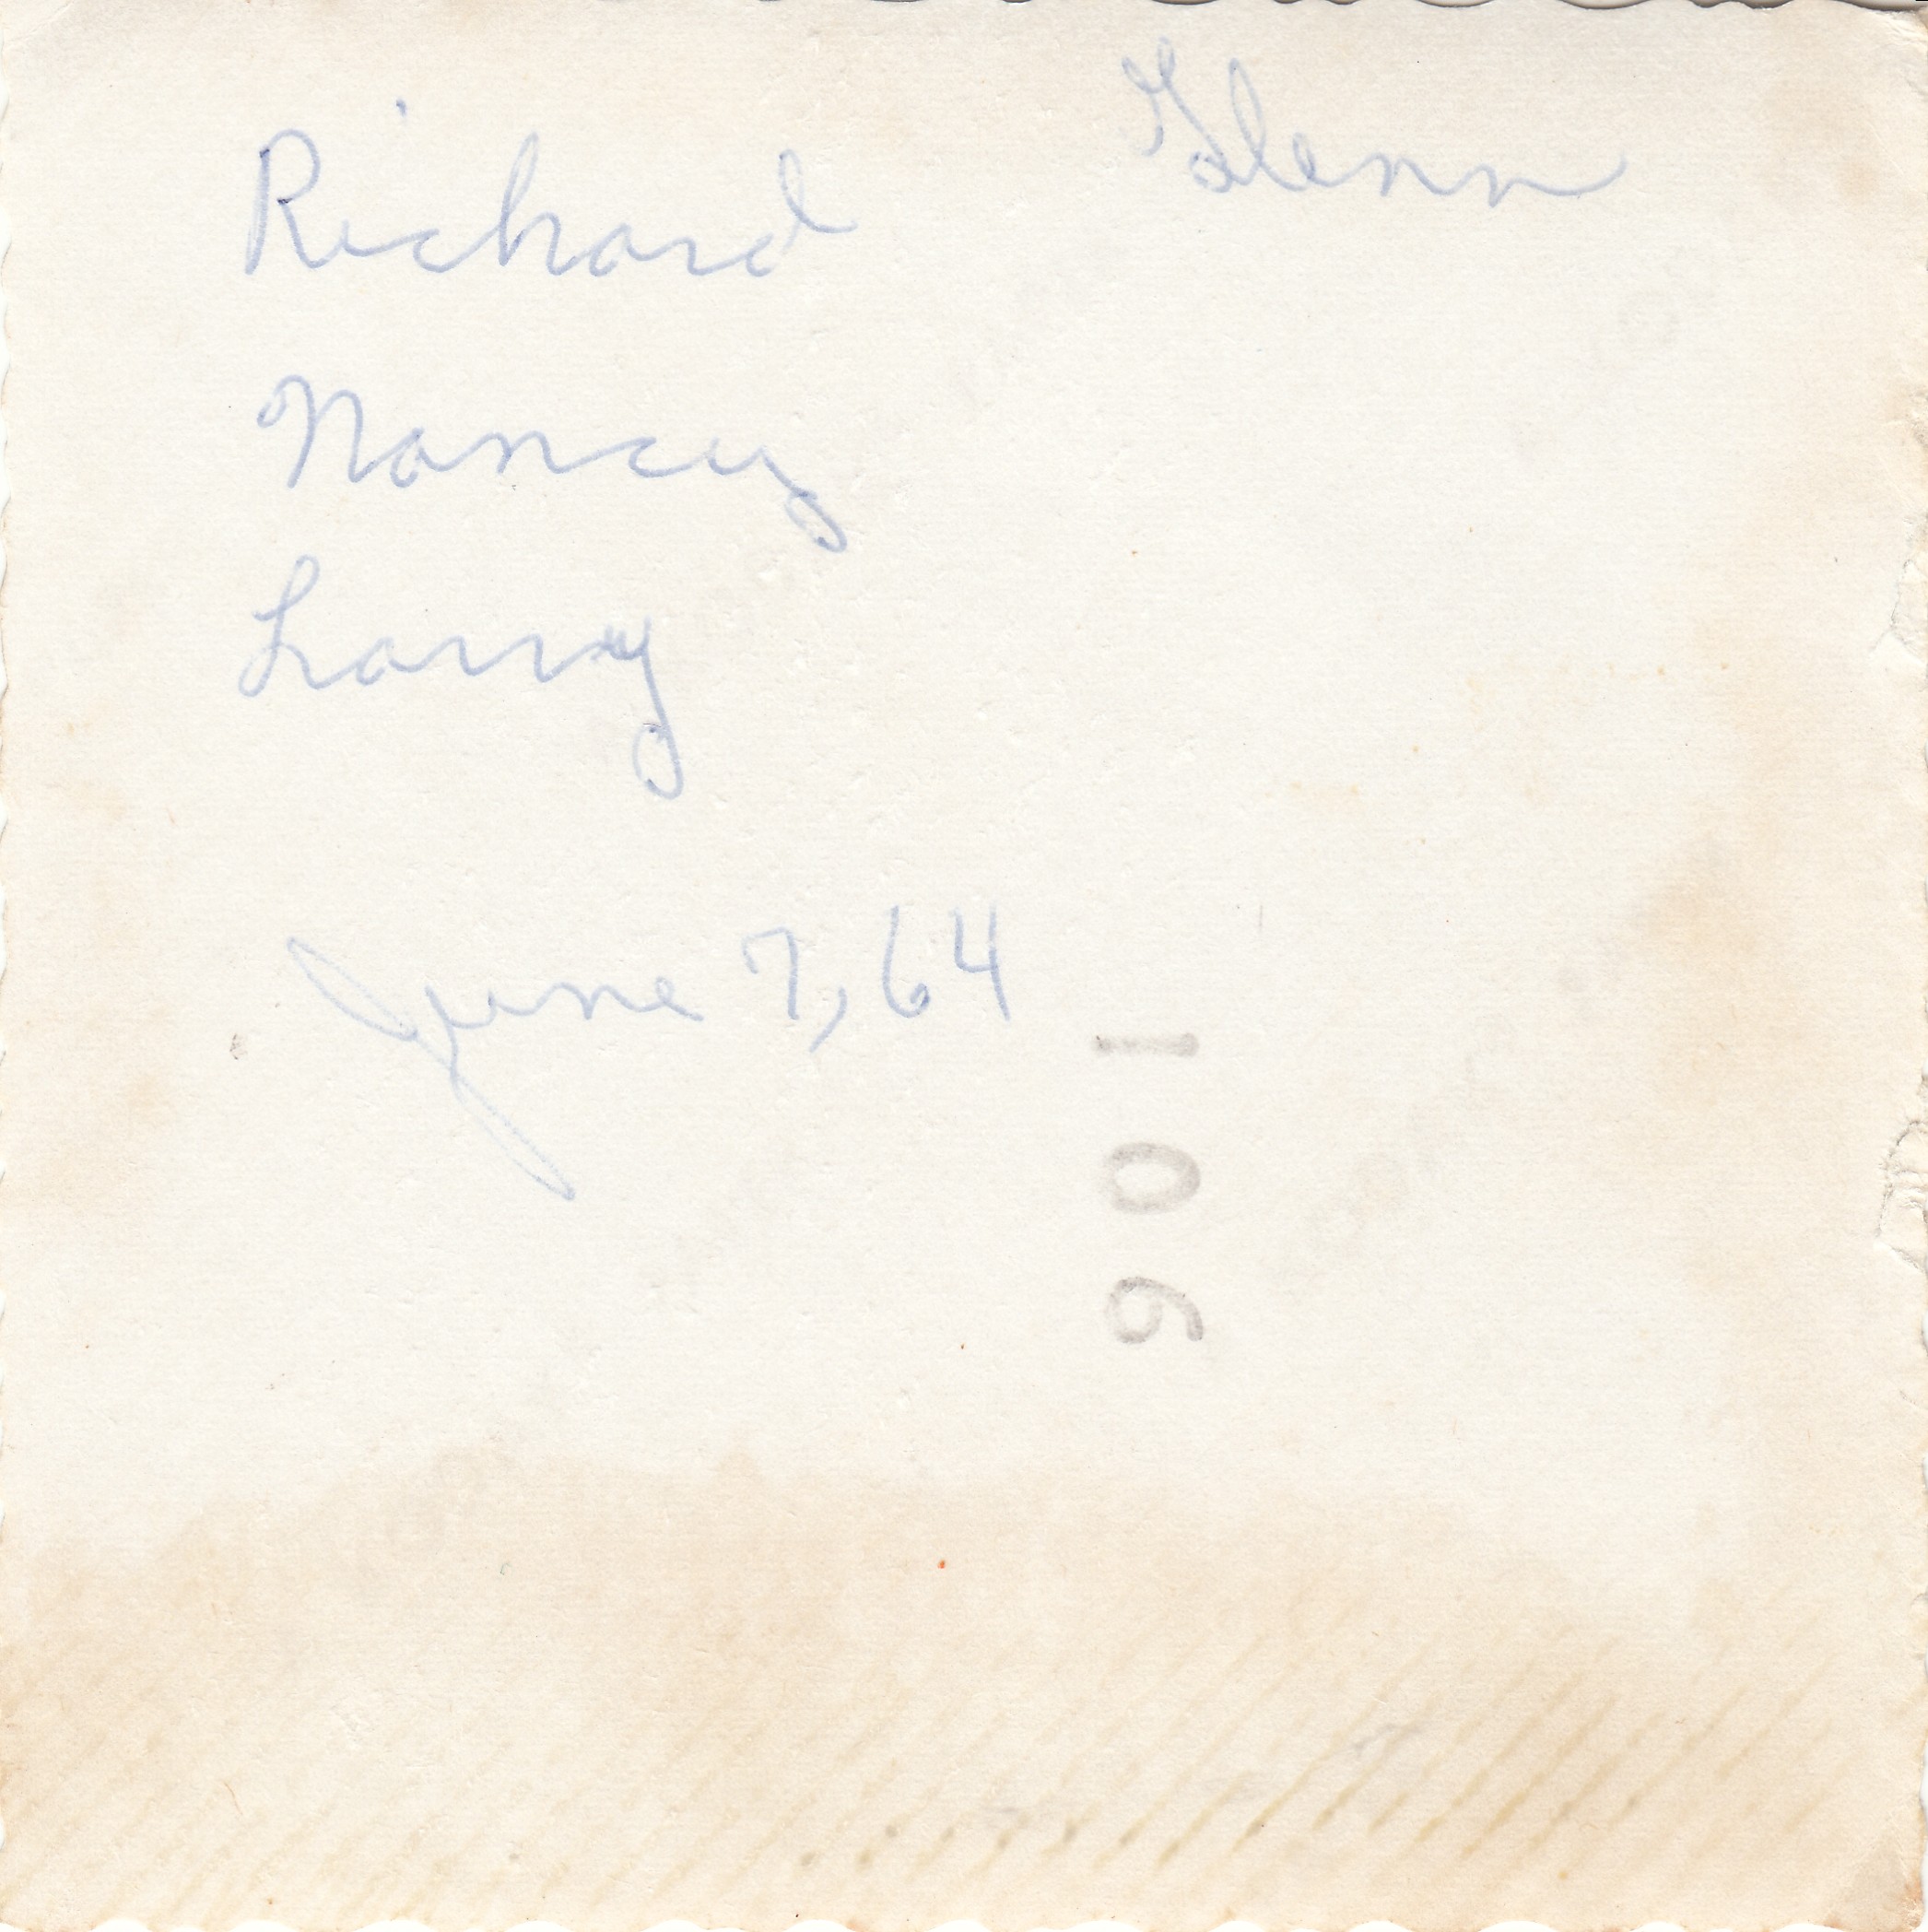 Glenn
Richard
Nancy
Larry
June 7, 64
106